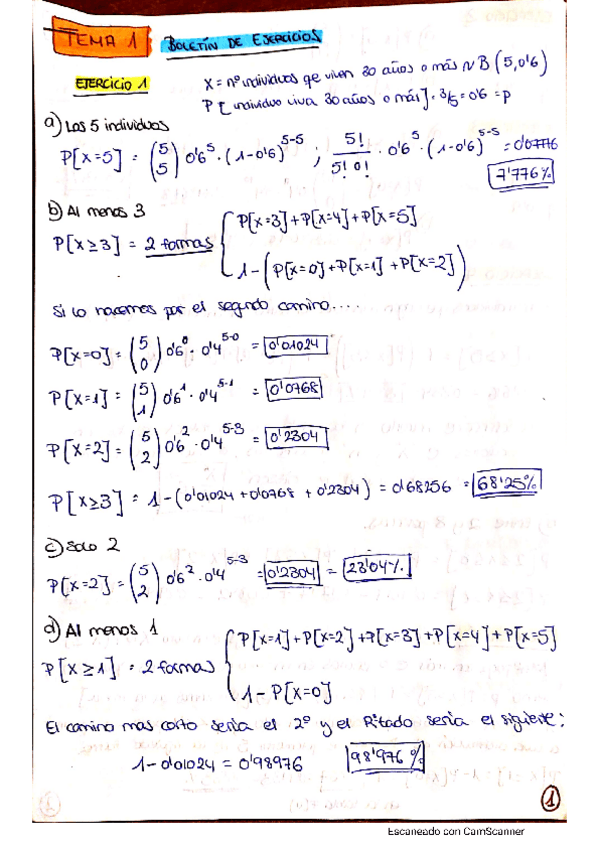 TEMA 1 BOLETÍN DE EJERCICIOS
EJERCICIO 1
X = nº individuos qe viven 30 años o más ~ B (5, 0'6)
P [individuo viva 30 años o más] = 3/5 = 0'6 = p
a) Los 5 individuos
P[X=5] = (5 5) 0'6^5 · (1-0'6)^5-5 ; 5!/5! 0! · 0'6^5 · (1-0'6)^5-5 = 0'0776
7'776%
b) Al menos 3
P[X≥3] = 2 formas { P[X=3]+P[X=4]+P[X=5]
1-(P[X=0]+P[X=1]+P[X=2])
Si lo hacemos por el segundo camino....
P[X=0] = (5 0) 0'6^0 · 0'4^5-0 = 0'01024
P[X=1] = (5 1) 0'6^1 · 0'4^5-1 = 0'0768
P[X=2] = (5 2) 0'6^2 · 0'4^5-3 = 0'2304
P[X≥3] = 1-(0'01024+0'0768+0'2304) = 0'68256 = 68'25%
c) Solo 2
P[X=2] = (5 2) 0'6^2 · 0'4^5-3 = 0'2304 = 23'04%
d) Al menos 1
P[X≥1] = 2 formas { P[X=1]+P[X=2]+P[X=3]+P[X=4]+P[X=5]
1-P[X=0]
El camino mas corto seria el 2º y el Rltado seria el siguiente:
1-0'01024 = 0'98976 98'976%
1
Escaneado con CamScanner